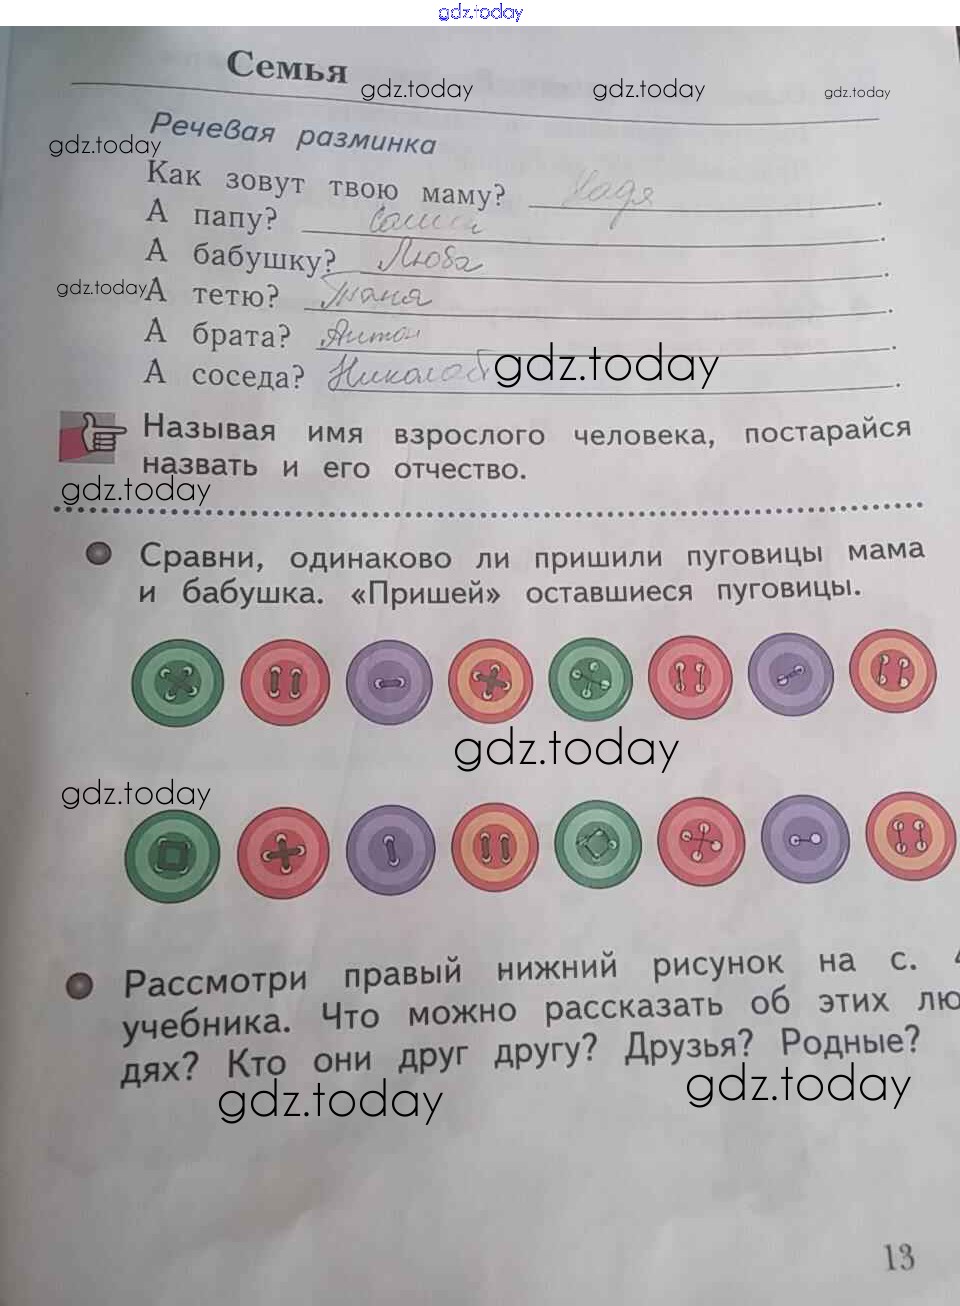 gdz.today
Семья
gdz.today gdz.today gdz.today
Речевая разминка
gdz.today
Как зовут твою маму? Надя.
А папу? Саша.
А бабушку? Люба.
gdz.today
А тетю? Таня.
А брата? Антон.
А соседа?
gdz.today
Называя имя взрослого человека, постарайся
назвать и его отчество.
gdz.today
Сравни, одинаково ли пришили пуговицы мама
и бабушка. «Пришей» оставшиеся пуговицы.
gdz.today
gdz.today
Рассмотри правый нижний рисунок на с. 4
учебника. Что можно рассказать об этих лю
дях? Кто они друг другу? Друзья? Родные?
gdz.today gdz.today
13